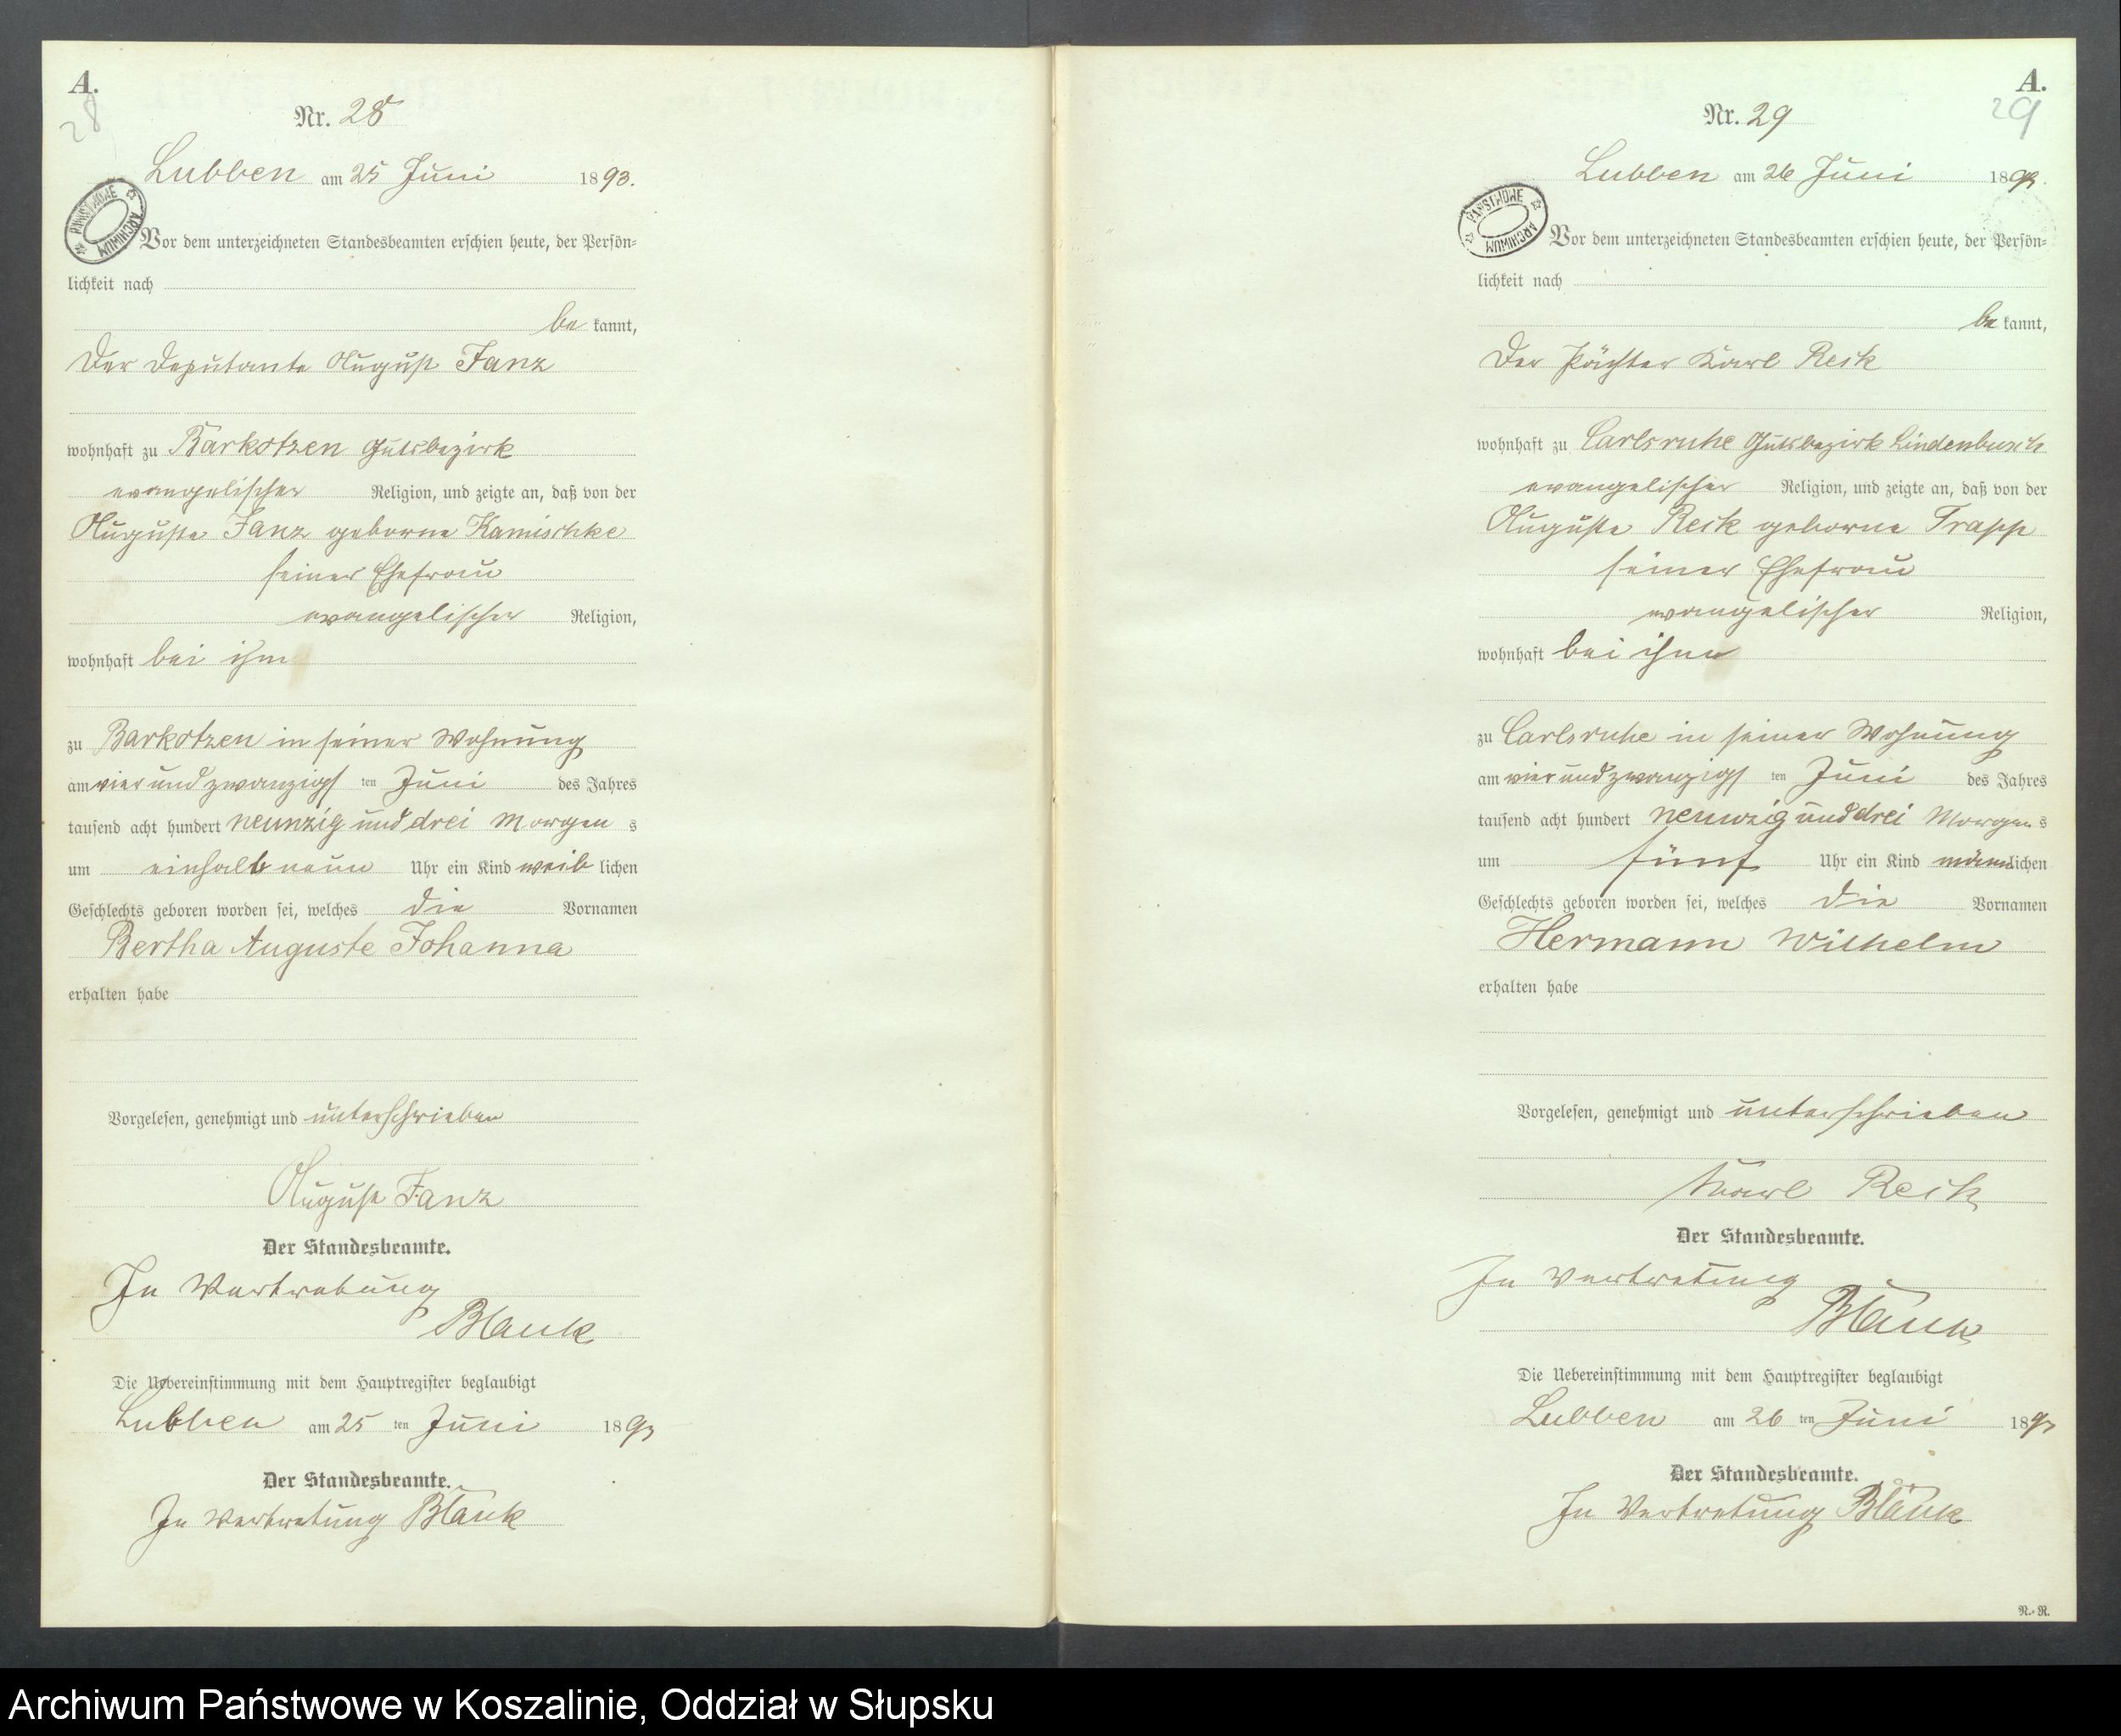 A.
28
Nr. 28
Lubben am 25 Juni 1893.
PAŃSTWOWE ARCHIWUM
Vor dem unterzeichneten Standesbeamten erschien heute, der Persön=
lichkeit nach
be kannt,
Der Deputante August Janz
wohnhaft zu Barkotzen Gutsbezirk
evangelischer Religion, und zeigte an, daß von der
Auguste Janz geborne Kamischke
seiner Ehefrau
evangelischer Religion,
wohnhaft bei ihm
zu Barkotzen in seiner Wohnung
am vier und zwanzigs ten Juni des Jahres
tausend acht hundert neunzig und drei Morgen s
um einhalb neun Uhr ein Kind weib lichen
Geschlechts geboren worden sei, welches die Vornamen
Bertha Auguste Johanna
erhalten habe
Vorgelesen, genehmigt und unterschrieben
August Janz
Der Standesbeamte.
In Vertretung
Blank
Die Uebereinstimmung mit dem Hauptregister beglaubigt
Lubben am 25 ten Juni 1893
Der Standesbeamte.
In Vertretung Blank
A.
29
Nr. 29
Lubben am 26 Juni 1893.
PAŃSTWOWE ARCHIWUM
Vor dem unterzeichneten Standesbeamten erschien heute, der Persön=
lichkeit nach
be kannt,
Der Pächter Karl Reik
wohnhaft zu Carlsruhe Gutsbezirk Lindenbusch
evangelischer Religion, und zeigte an, daß von der
Auguste Reik geborne Trapp
seiner Ehefrau
evangelischer Religion,
wohnhaft bei ihm
zu Carlsruhe in seiner Wohnung
am vier und zwanzigs ten Juni des Jahres
tausend acht hundert neunzig und drei Morgen s
um fünf Uhr ein Kind männlichen
Geschlechts geboren worden sei, welches die Vornamen
Hermann Wilhelm
erhalten habe
Vorgelesen, genehmigt und unterschrieben
Karl Reik
Der Standesbeamte.
In Vertretung
Blank
Die Uebereinstimmung mit dem Hauptregister beglaubigt
Lubben am 26 ten Juni 1893
Der Standesbeamte.
In Vertretung Blank
N.=R.
Archiwum Państwowe w Koszalinie, Oddział w Słupsku